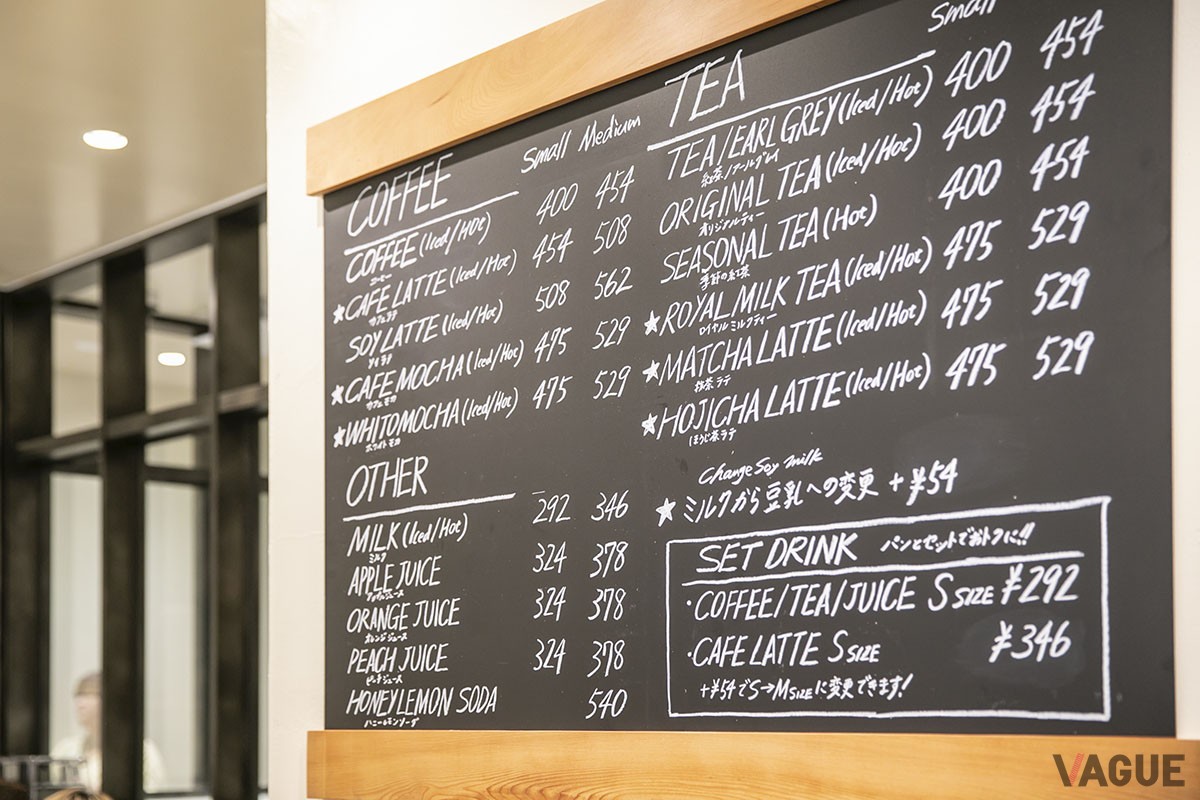 COFFEE Small Medium
COFFEE (Iced/Hot) 400 454
コーヒー
★CAFE LATTE (Iced/Hot) 454 508
カフェラテ
SOY LATTE (Iced/Hot) 508 562
ソイラテ
★CAFE MOCHA (Iced/Hot) 475 529
カフェモカ
★WHITOMOCHA (Iced/Hot) 475 529
ホワイトモカ
OTHER
MILK (Iced/Hot) 292 346
ミルク
APPLE JUICE 324 378
アップルジュース
ORANGE JUICE 324 378
オレンジジュース
PEACH JUICE 324 378
ピーチジュース
HONEY LEMON SODA 540
ハニーレモンソーダ
TEA Small
TEA/EARL GREY (Iced/Hot) 400 454
紅茶/アールグレイ
ORIGINAL TEA (Iced/Hot) 400 454
オリジナルティー
SEASONAL TEA (Hot) 400 454
季節の紅茶
★ROYAL MILK TEA (Iced/Hot) 475 529
ロイヤルミルクティー
★MATCHA LATTE (Iced/Hot) 475 529
抹茶ラテ
★HOJICHA LATTE (Iced/Hot) 475 529
ほうじ茶ラテ
Change Soy milk
★ミルクから豆乳への変更 +¥54
SET DRINK パンとセットでおトクに!!
・COFFEE/TEA/JUICE S SIZE ¥292
・CAFE LATTE S SIZE ¥346
+¥54でS→M SIZEに変更できます!
VAGUE